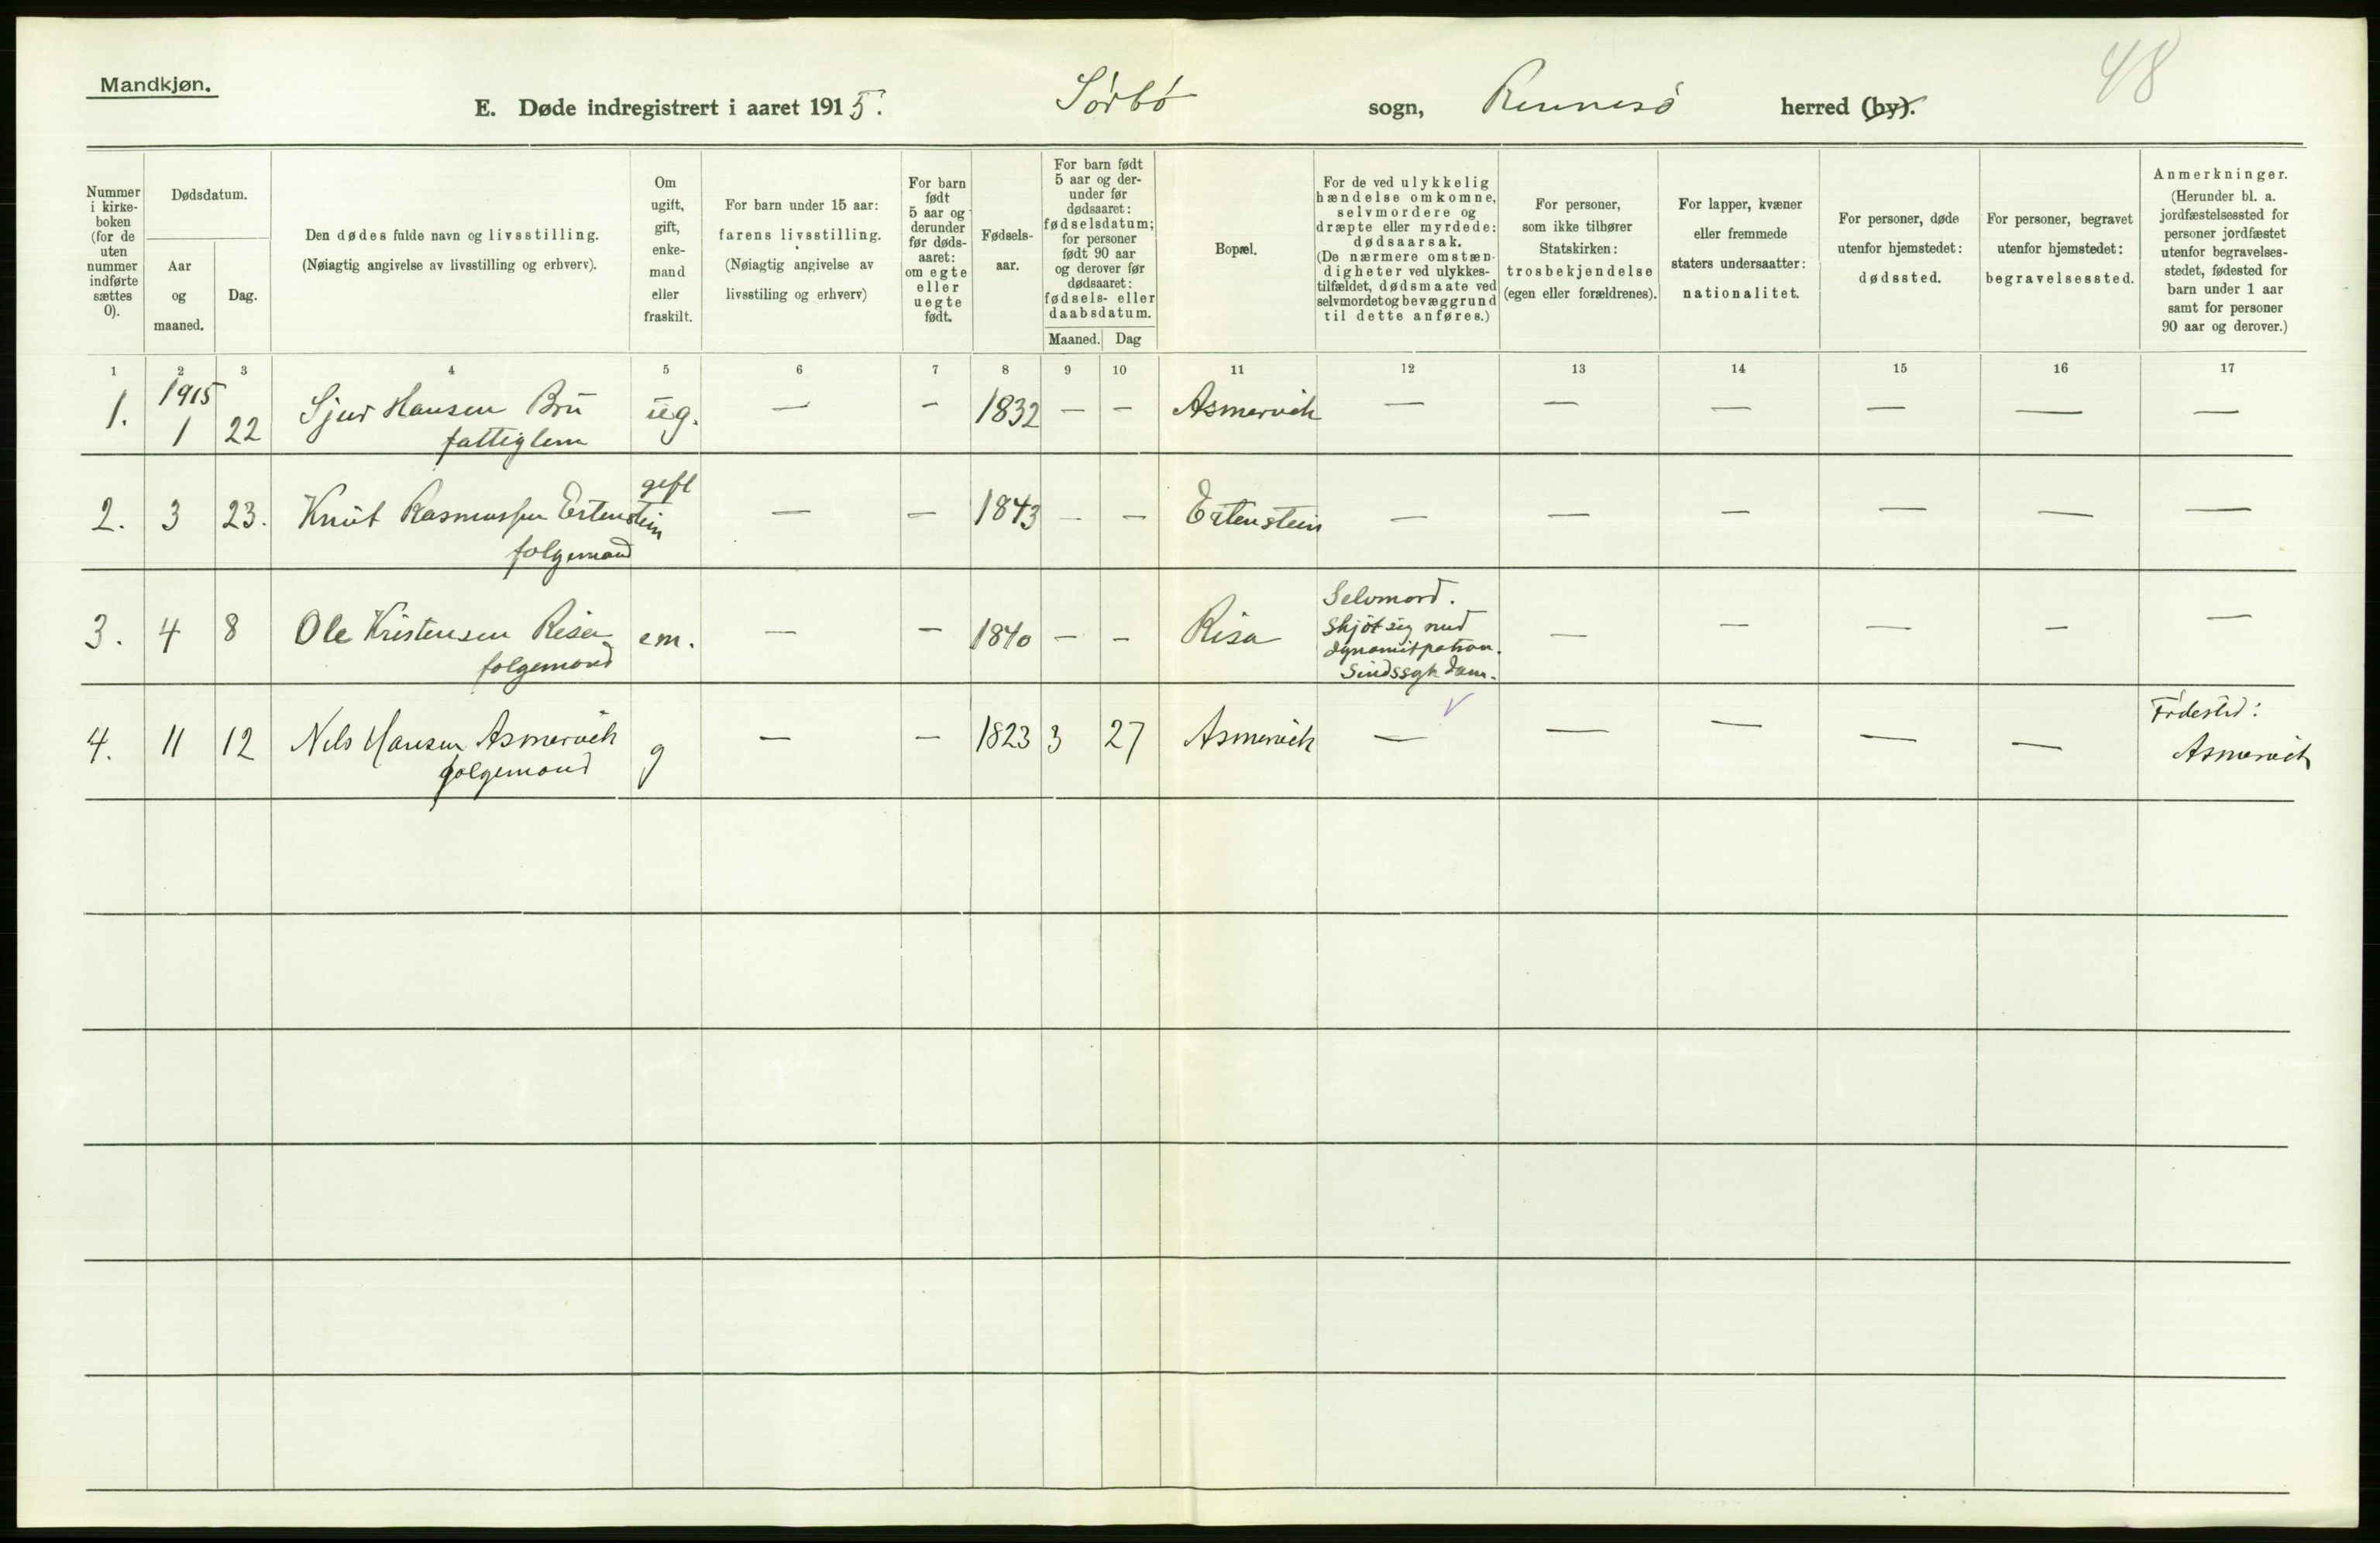 Mandkjøn.
48
E. Døde indregistrert i aaret 1915. Sørbø sogn, Rennesø herred (by).
Nummer i kirke- boken (for de uten nummer indførte sættes 0).
Dødsdatum.
Aar og maaned.
Dag.
Den dødes fulde navn og livsstilling.
(Nøiagtig angivelse av livsstilling og erhverv).
Om ugift, gift, enke- mand eller fraskilt.
For barn under 15 aar:
farens livsstilling.
(Nøiagtig angivelse av
livsstiling og erhverv)
For barn født 5 aar og derunder før døds- aaret: om egte eller uegte født.
Fødsels- aar.
For barn født 5 aar og der- under før dødsaaret: fødselsdatum; for personer født 90 aar og derover før dødsaaret: fødsels- eller daabsdatum.
Maaned. Dag
Bopæl.
For de ved ulykkelig hændelse omkomne, selvmordere og dræpte eller myrdede: dødsaarsak. (De nærmere omstæn- digheter ved ulykkes- tilfældet, dødsmaate ved selvmordet og bevæggrund til dette anføres.)
For personer, som ikke tilhører Statskirken: trosbekjendelse (egen eller forældrenes).
For lapper, kvæner eller fremmede staters undersaatter: nationalitet.
For personer, døde utenfor hjemstedet: dødssted.
For personer, begravet utenfor hjemstedet: begravelsessted.
Anmerkninger.
(Herunder bl. a. jordfæstelsessted for personer jordfæstet utenfor begravelses- stedet, fødested for barn under 1 aar samt for personer 90 aar og derover.)
1 2 3 4 5 6 7 8 9 10 11 12 13 14 15 16 17
1915
1. 1 22 Sjur Hansen Bru ug. — — 1832 — — Asmervik — — — — — —
fattiglem
gift
2. 3 23. Knut Rasmussen Ertenstein — — 1843 — — Ertenstein — — — — — —
folgemand
3. 4 8 Ole Kristensen Risa em. — — 1840 — — Risa Selvmord. — — — — —
folgemand
Skjøt sig med
dynamitpatron.
Sindssygdom.
4. 11 12 Nils Hansen Asmervik g — — 1823 3 27 Asmervik — — — — — Fødested:
folgemand
Asmervik